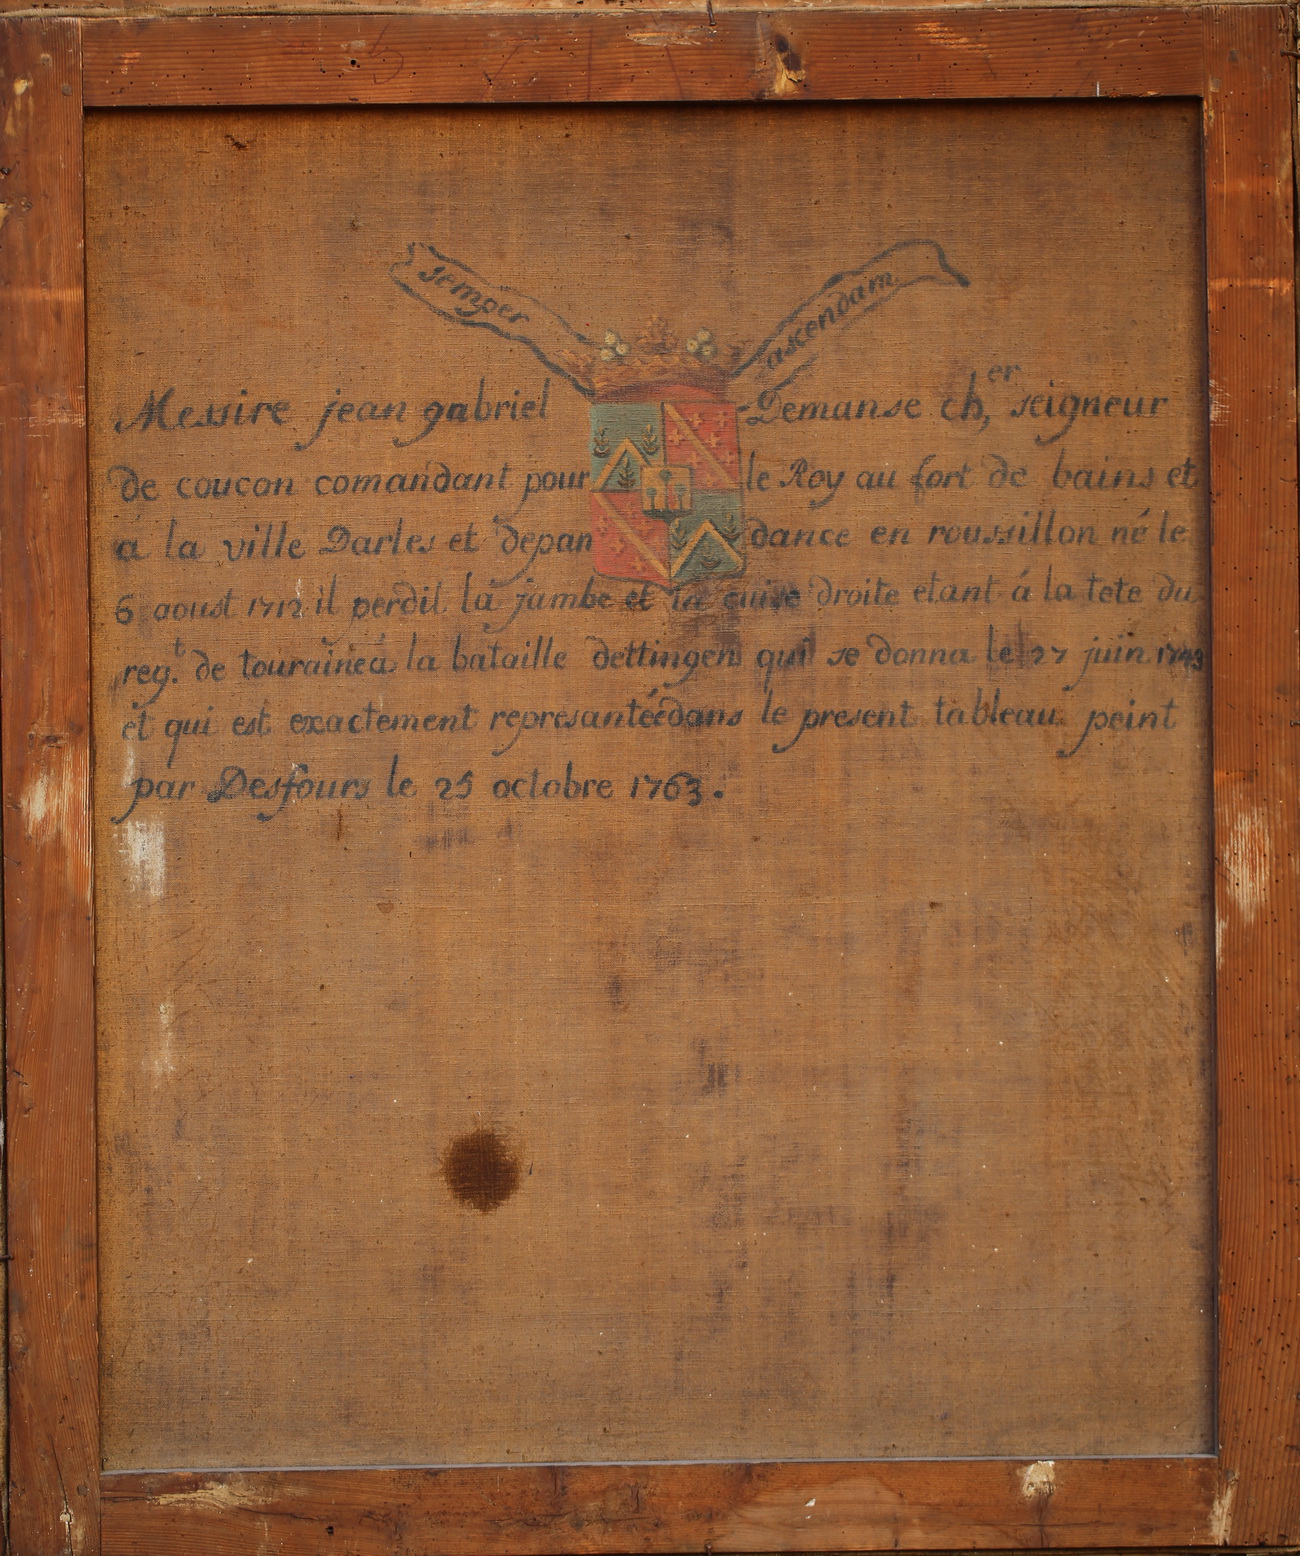 semper ascendam
Messire jean gabriel Demanse ch,er seigneur
de coucon comandant pour le Roy au fort de bains et
a la ville Darles et depandance en roussillon né le
6 aoust 1712 il perdit la jambe et la cuise droite etant á la tete du
reg.t de tourainea la bataille dettingen qui se donna le 27 juin 1743
et qui est exactement represantéedans le present tableau peint
par Desfours le 25 octobre 1763.